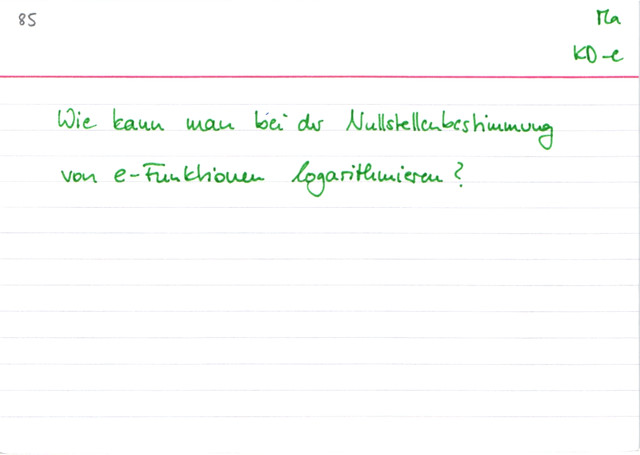 85
Ma
KD-e
Wie kann man bei der Nullstellenbestimmung
von e-Funktionen logarithmieren?